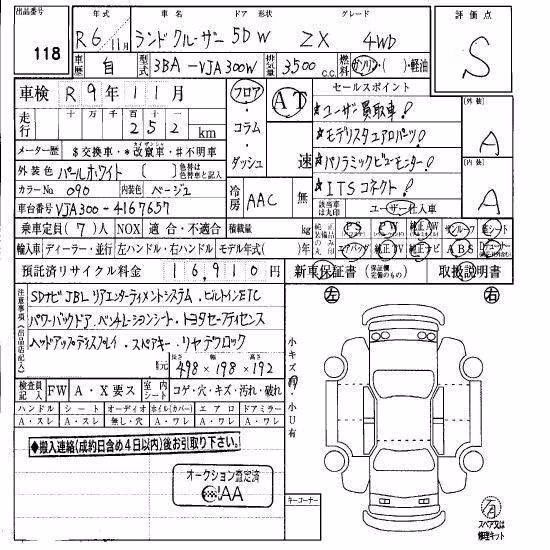 出品番号 118
年式 R6/11月 車名 ランドクルーザー ドア形状 5D W グレード ZX 4WD
評価点 S
車歴 自 型式 3BA-VJA300W 排気量 3,500 c.c. 燃料 ガソリン・( )・軽油
車検 R9年11月
フロア・コラム・ダッシュ
AT 速
セールスポイント
★ユーザー買取車!
★モデリスタエアロパーツ!
★パノラミックビューモニター!
★ITSコネクト!
外装 A
内装 A
走行 十万 万 千 百 十 一
252 km
メーター歴 $交換車・*改竄車・#不明車
外装色 パールホワイト ( ) 色替は色替車と記入
カラーNo 090 内装色 ベージュ
冷房 AAC 無
該当車は丸印 ユーザー仕入車
車台番号 VJA300-4167657
乗車定員 (7)人 NOX 適合・不適合 積載量 kg
純正装備品のみ丸印 PS PW サンルーフ 革シート
エアバッグ 純正TV 純正ナビ ABS
輸入車 ディーラー・並行 左ハンドル・右ハンドル モデル年式( )年
預託済リサイクル料金 16,910円
新車保証書 (保証欄完備のもの) 取扱説明書
注意事項(出品店記入)
SDナビ JBL リアエンターテイメントシステム、ビルトインETC
パワーバックドア・ベンチレーションシート・トヨタセーフティセンス
ヘッドアップディスプレイ・スペアキー・リヤデフロック
長さ 幅 高さ
498×198×192
検査員記入 FW A・X要ス 室内シート コゲ・穴・キズ・汚れ・破れ
ハンドル シート オーディオ ホイル(カバー) エアロ ドアミラー
A・スレ A・スレ 無し・穴 A・ワレ A・ワレ A・ワレ
小キズ有・小U有
◆搬入連絡(成約日含め4日以内)後お引取り下さい。
オークション査定済
AA
キーコーナー
左
右
スペア又は修理キット